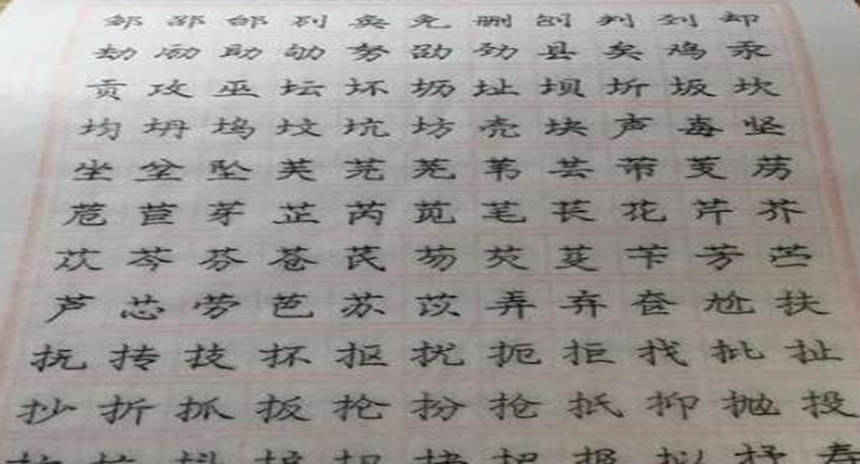 邹 邵 邰 别 奂 免 删 刨 判 到 却
劫 励 助 劬 努 劭 劲 县 矣 鸡 汞
贡 攻 巫 坛 坏 坜 址 坝 圻 坂 坎
均 坍 坞 坟 坑 坊 壳 块 声 毐 坚
坐 坌 坠 芙 芫 芜 苇 芸 芾 芰 苈
苊 苣 芽 芷 芮 苋 芼 苌 花 芹 芥
苁 芩 芬 苍 芪 芴 芡 芟 苄 芳 苎
芦 芯 劳 芭 苏 苡 弄 弃 奁 尬 扶
抚 抟 技 抔 抠 扰 扼 拒 找 批 扯
抄 折 抓 扳 抡 扮 抢 抵 抑 抛 投
抖 护 扭 把 报 拟 抒